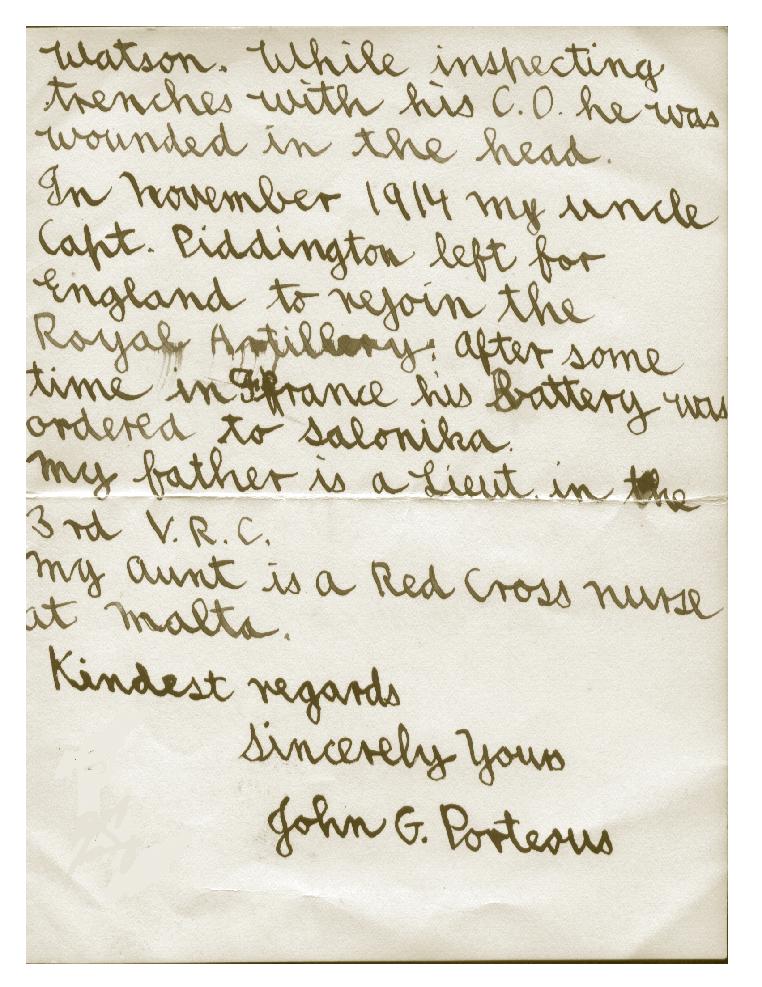 Watson. While inspecting
trenches with his C.O. he was
wounded in the head.
In November 1914 my uncle
Capt. Piddington left for
England to rejoin the
Royal Artillery. After some
time in France his battery was
ordered to Salonika.
My father is a Lieut. in the
3rd V.R.C.
My aunt is a Red Cross nurse
at Malta.
Kindest regards
Sincerely Yours
John G. Porteous